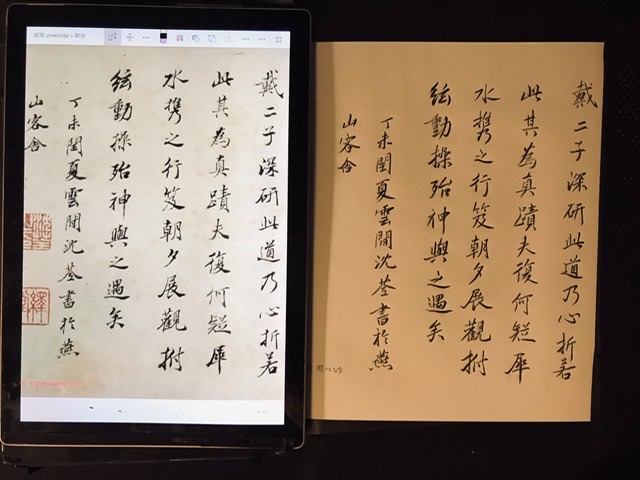 網頁 onenote
戴二子深研此道乃心折若
此其為真蹟夫復何疑犀
水攜之行笈朝夕展觀拊
絃動操殆神與之遇矣
丁未閏夏雲間沈荃書於燕
山客舍
cidianwang.com
戴二子深研此道乃心折若
此其為真蹟夫復何疑犀
水攜之行笈朝夕展觀拊
絃動操殆神與之遇矣
丁未閏夏雲間沈荃書於燕
山客舍